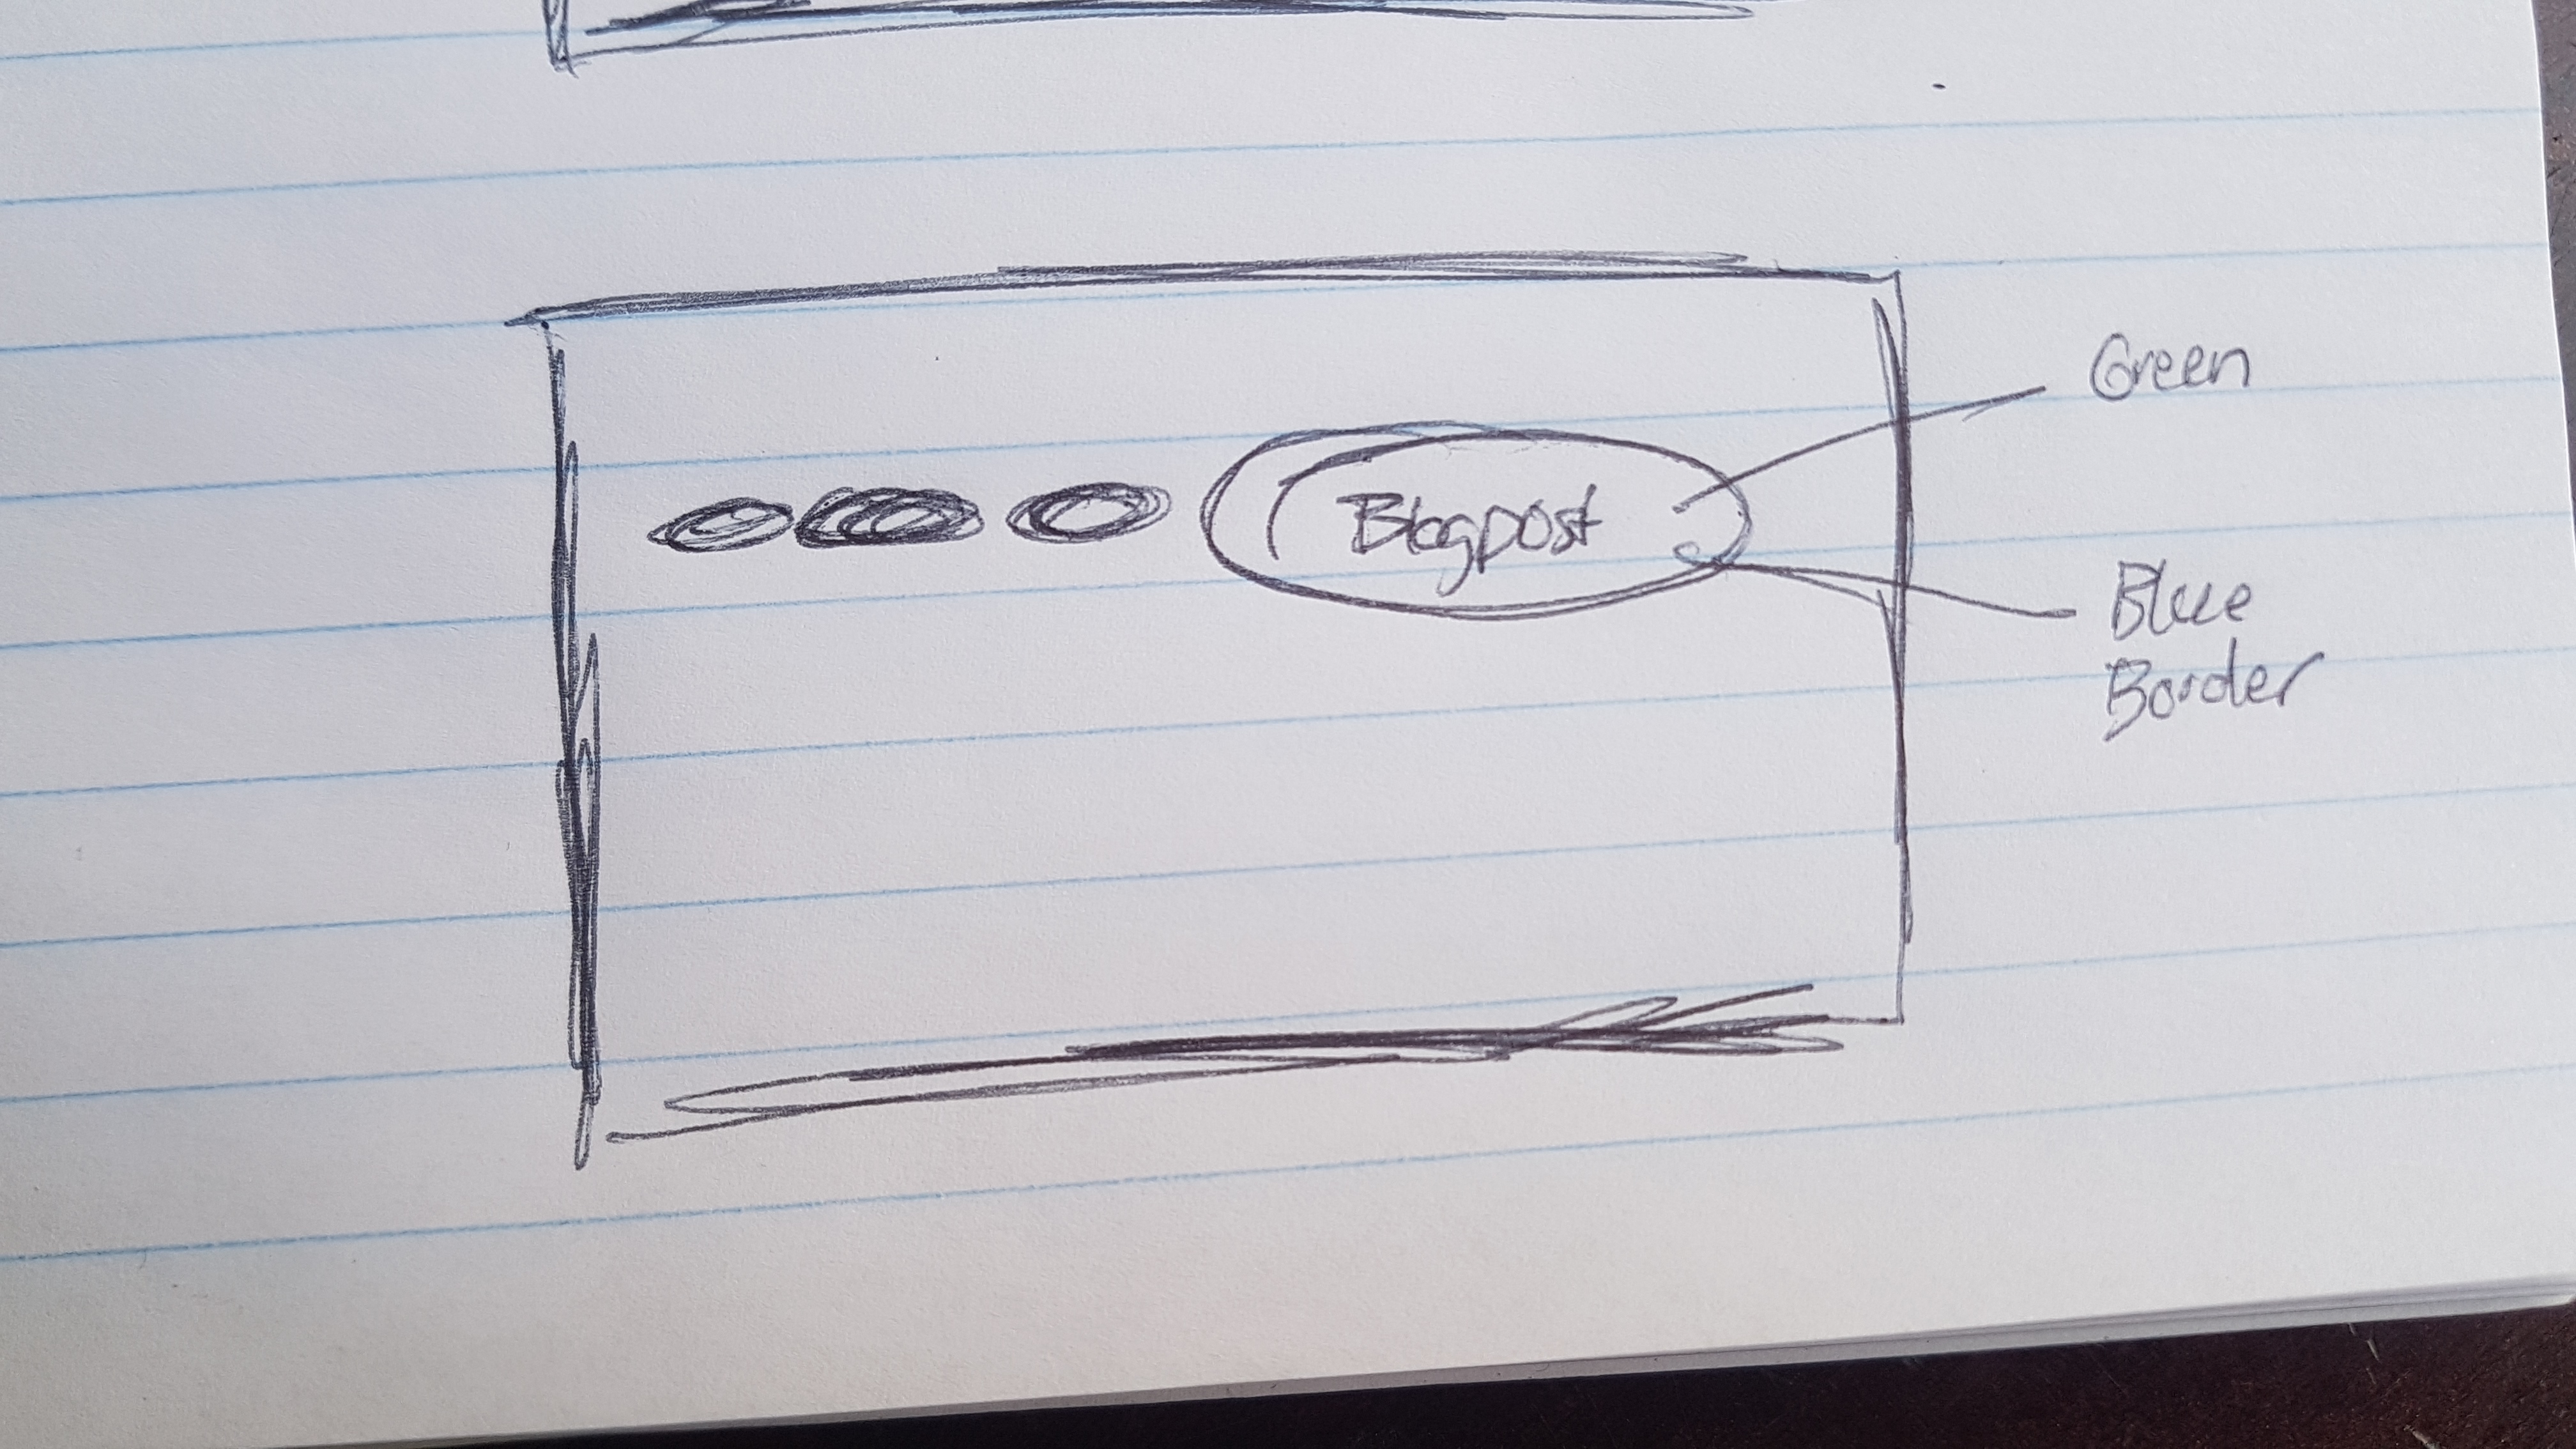 Blogpost
Green
Blue
Border